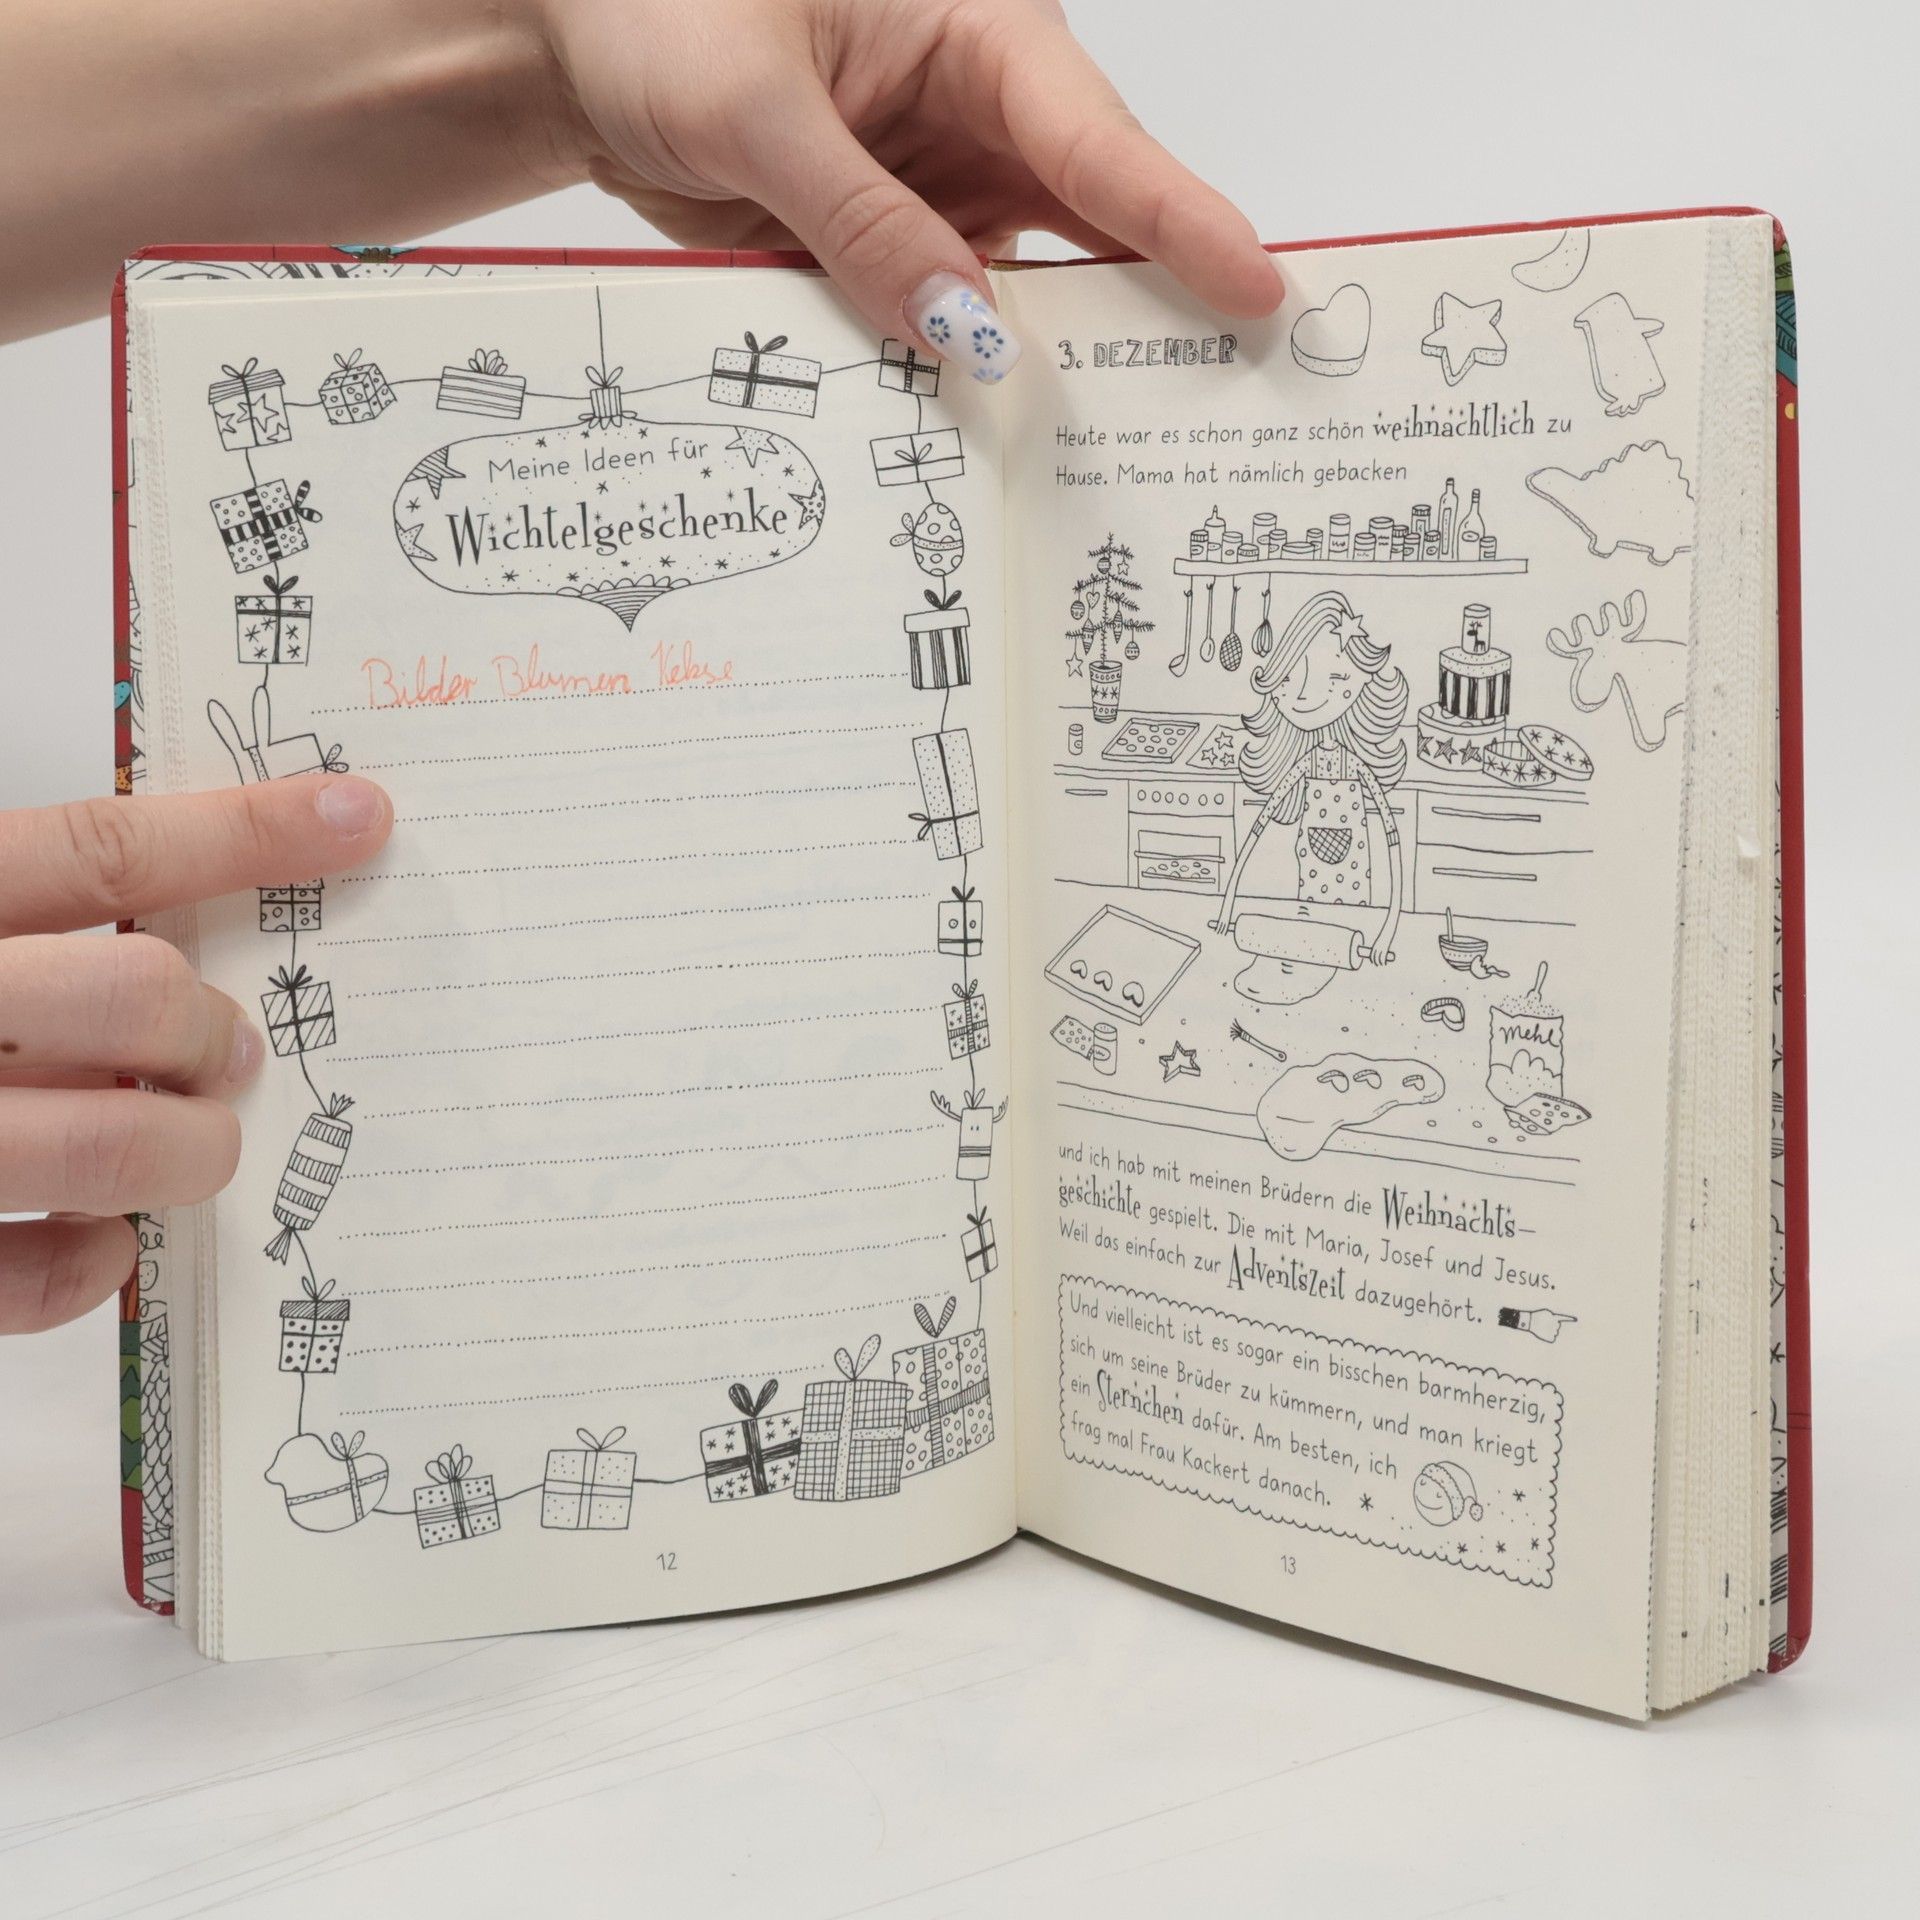 Meine Ideen für
Wichtelgeschenke
Bilder Blumen Kekse
12
3. DEZEMBER
Heute war es schon ganz schön weihnachtlich zu
Hause. Mama hat nämlich gebacken
Mehl
und ich hab mit meinen Brüdern die Weihnachts-
geschichte gespielt. Die mit Maria, Josef und Jesus.
Weil das einfach zur Adventszeit dazugehört.
Und vielleicht ist es sogar ein bisschen barmherzig,
sich um seine Brüder zu kümmern, und man kriegt
ein Sternchen dafür. Am besten, ich
frag mal Frau Kackert danach.
13